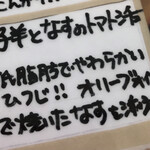 子羊となすのトマト
脂肪でやわらかい
ひつじ!! オリーブオイ
で焼いたなすと